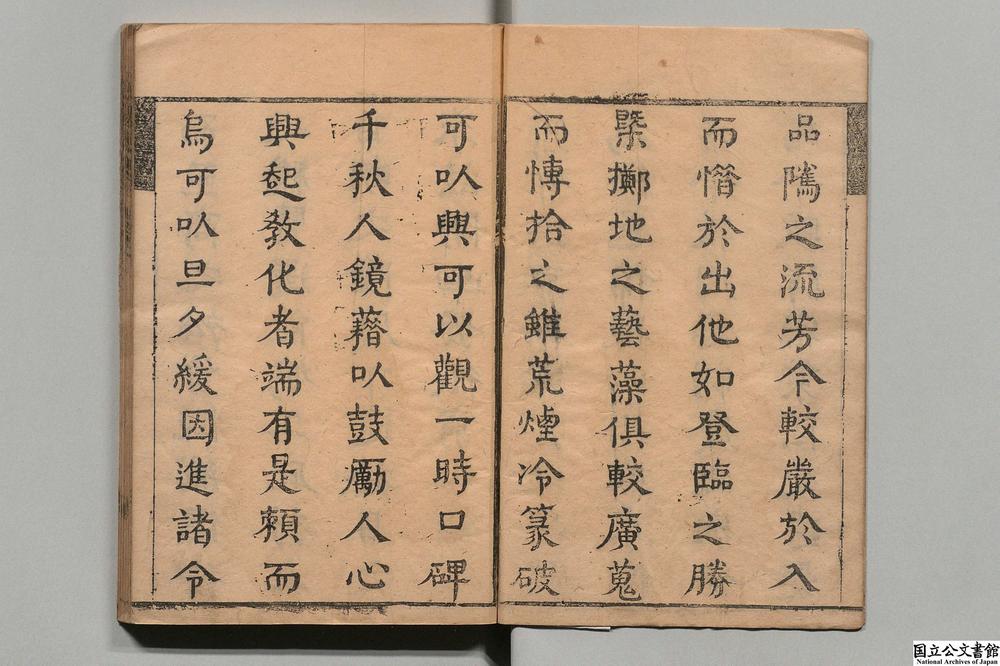 品隲之流芳今較嚴於入
而憯於出他如登臨之勝
槩擲地之藝藻俱較廣蒐
而慱拾之雖荒煙冷篆破
碑口時一觀以可興以可
千秋人鏡藉以鼓勵人心
興起教化者端有是賴而
烏可以旦夕緩因進諸令
国立公文書館
National Archives of Japan